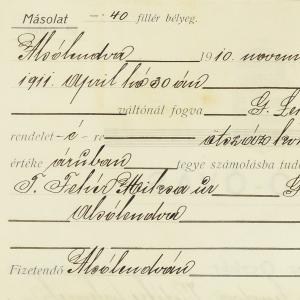 Másolat — 40 fillér bélyeg.
Alsólendva 1910. novem
1911. April hó 30 án
váltónál fogva G. Len
rendelet-é-re ötszáz kor
értéke áruban tegye számolásba tud
T. Fehér Miksa úr
Alsólendva
Fizetendő Alsólendván